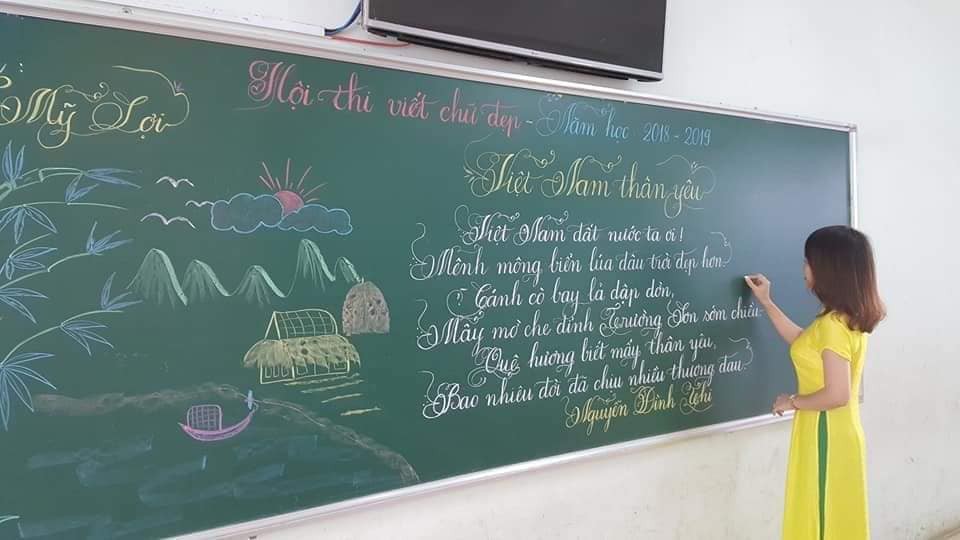 Mỹ Lợi
Hội thi viết chữ đẹp - Năm học 2018 - 2019
Việt Nam thân yêu
Việt Nam đất nước ta ơi!
Mênh mông biển lúa đâu trời đẹp hơn
Cánh cò bay lả dập dờn,
Mây mờ che đỉnh Trường Sơn sớm chiều.
Quê hương biết mấy thân yêu,
Bao nhiêu đời đã chịu nhiều thương đau.
Nguyễn Đình Thi